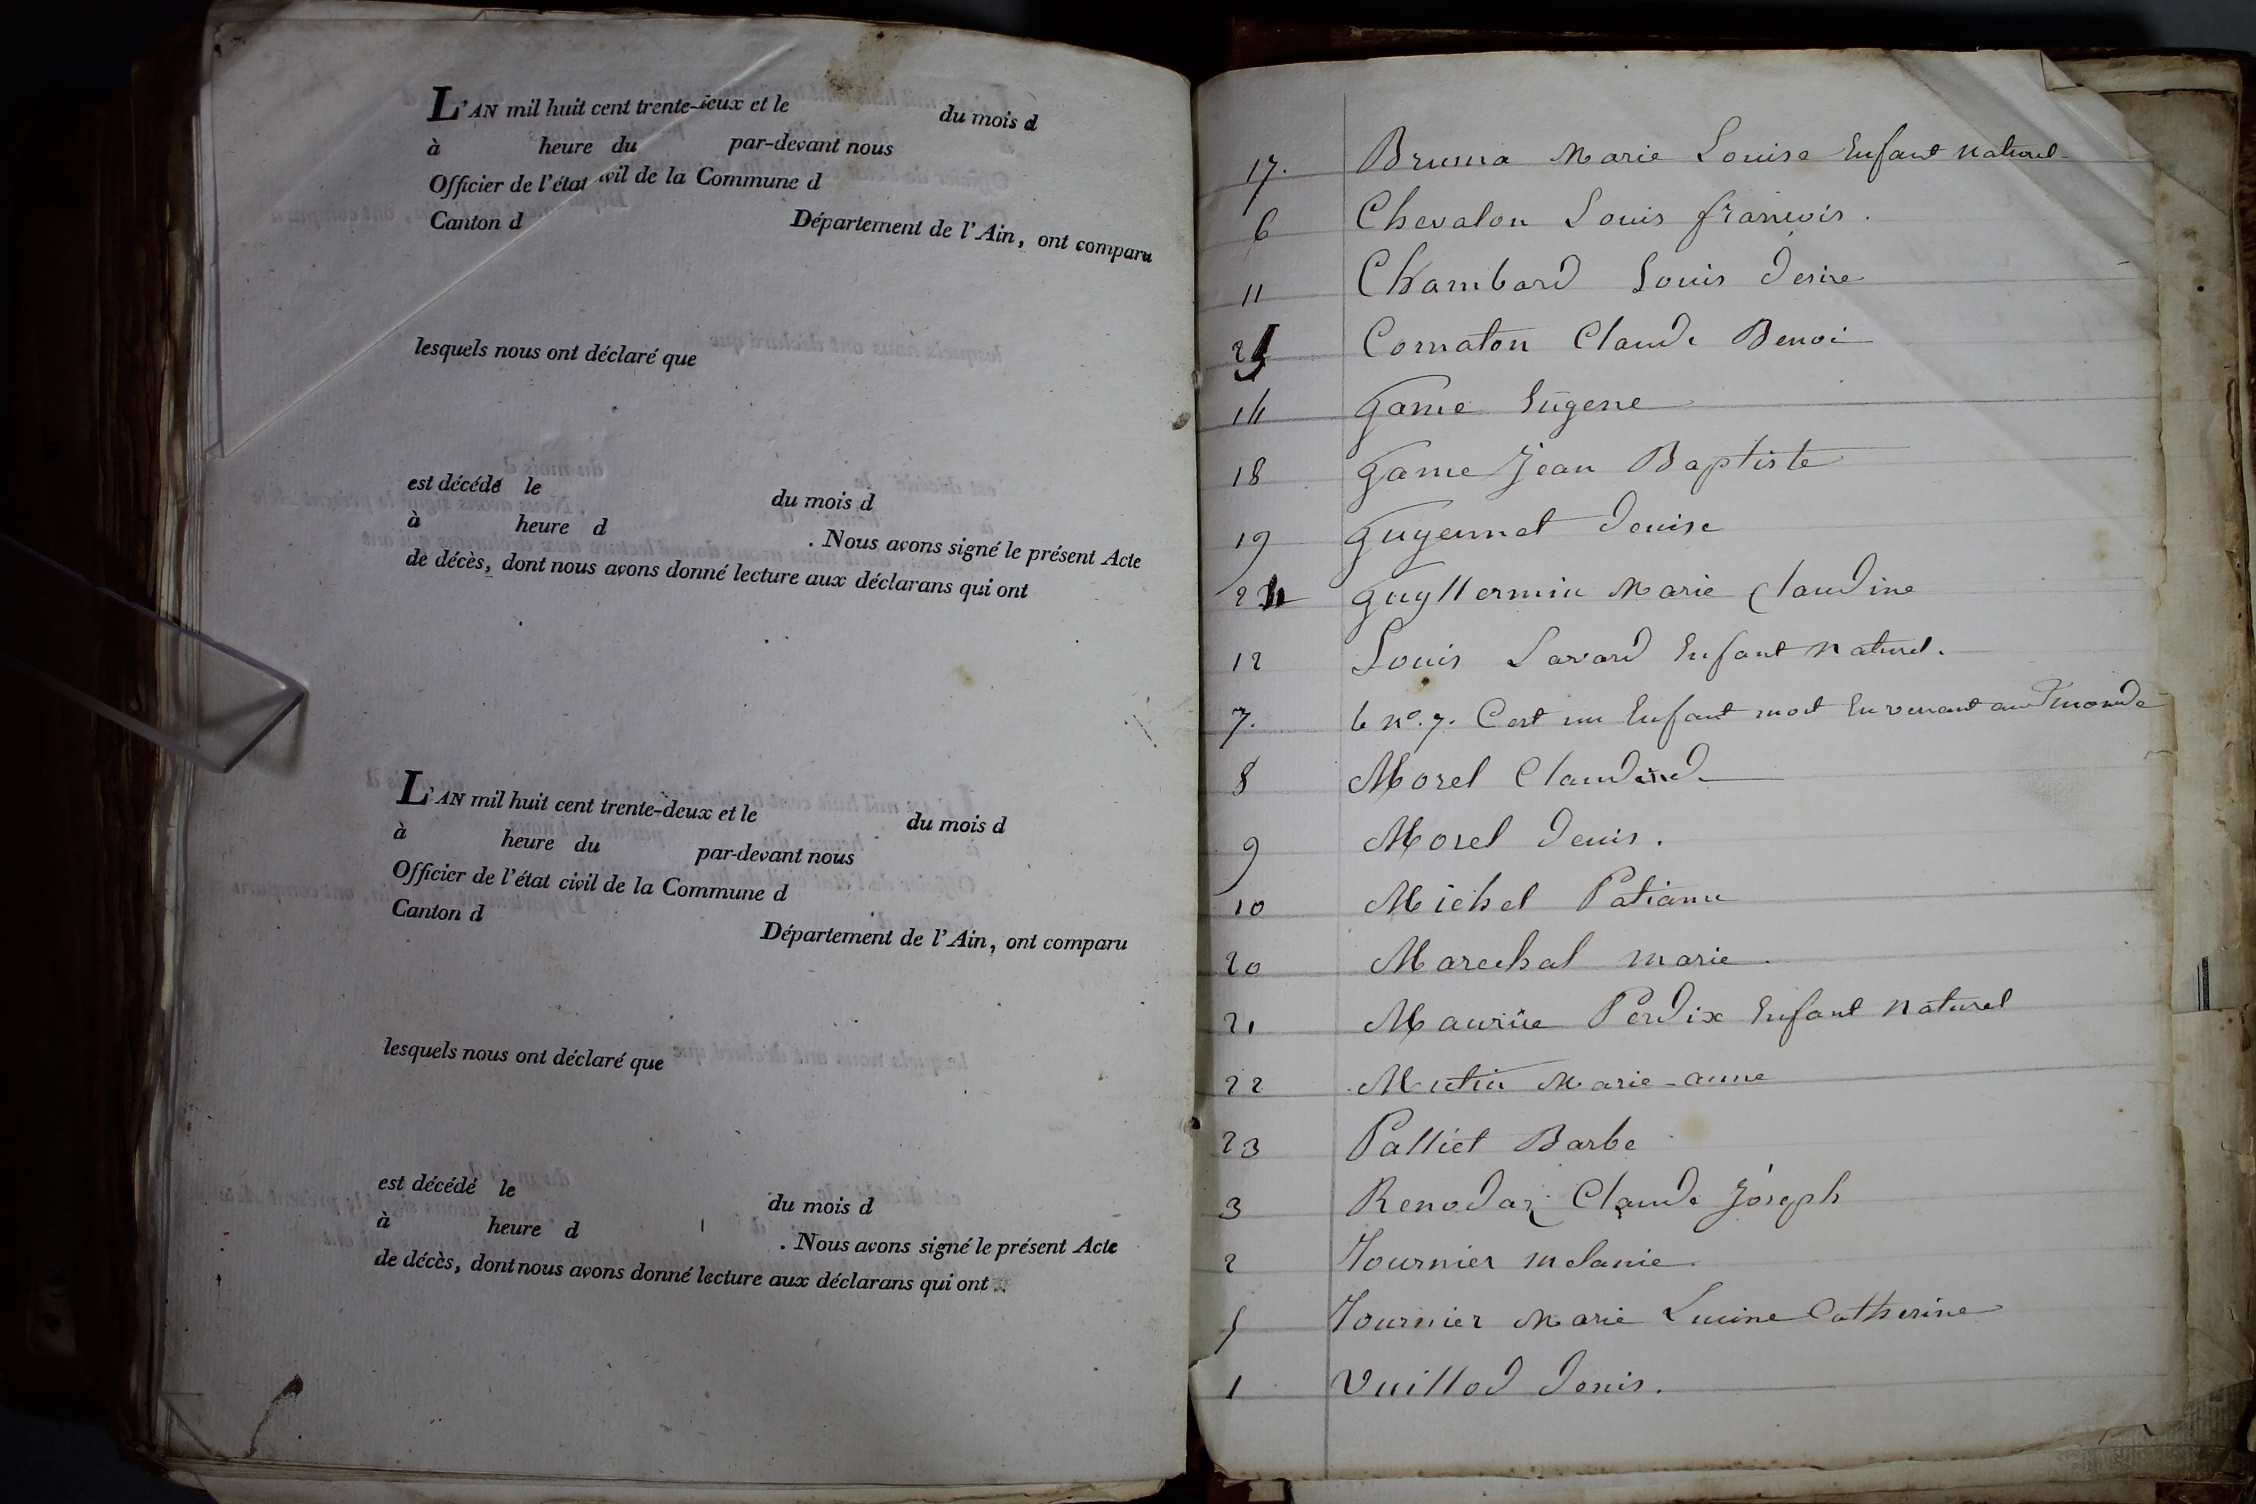 L'AN mil huit cent trente-deux et le du mois d
à heure du par-devant nous
Officier de l'état civil de la Commune d
Canton d Département de l'Ain, ont comparu
lesquels nous ont déclaré que
est décédé le du mois d
à heure d . Nous avons signé le présent Acte
de décès, dont nous avons donné lecture aux déclarans qui ont
L'AN mil huit cent trente-deux et le du mois d
à heure du par-devant nous
Officier de l'état civil de la Commune d
Canton d Département de l'Ain, ont comparu
lesquels nous ont déclaré que
est décédé le du mois d
à heure d . Nous avons signé le présent Acte
de décès, dont nous avons donné lecture aux déclarans qui ont
17. Bruma Marie Louise Enfant naturel
6 Chevalon Louis françois.
11 Chambard Louis desire
25 Cornaton Claude Benoi
14 Game Eugene
18 Game Jean Baptiste
19 Guyennet denise
24 Guyllermin Marie Claudine
12 Louis Savard Enfant naturel.
7. le no. 7. C'est un Enfant mort En venant au monde
8 Morel Claudine
9 Morel denis.
10 Michel
20 Marechal marie.
21 Maurïce Perdix Enfant naturel
22 Mutin Marie-anne
23 Palliet Barbe
3 Renodaz Claude Joseph
2 Tournier melanie
5 Tournier Marie Lucine Catherine
1 Vuillod denis.